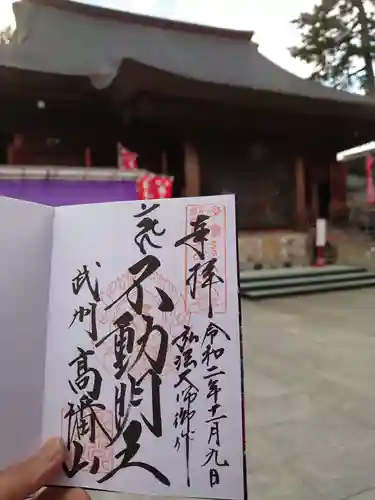 奉拝
令和二年十一月九日
弘法大師御作
不動明王
武州
高幡山